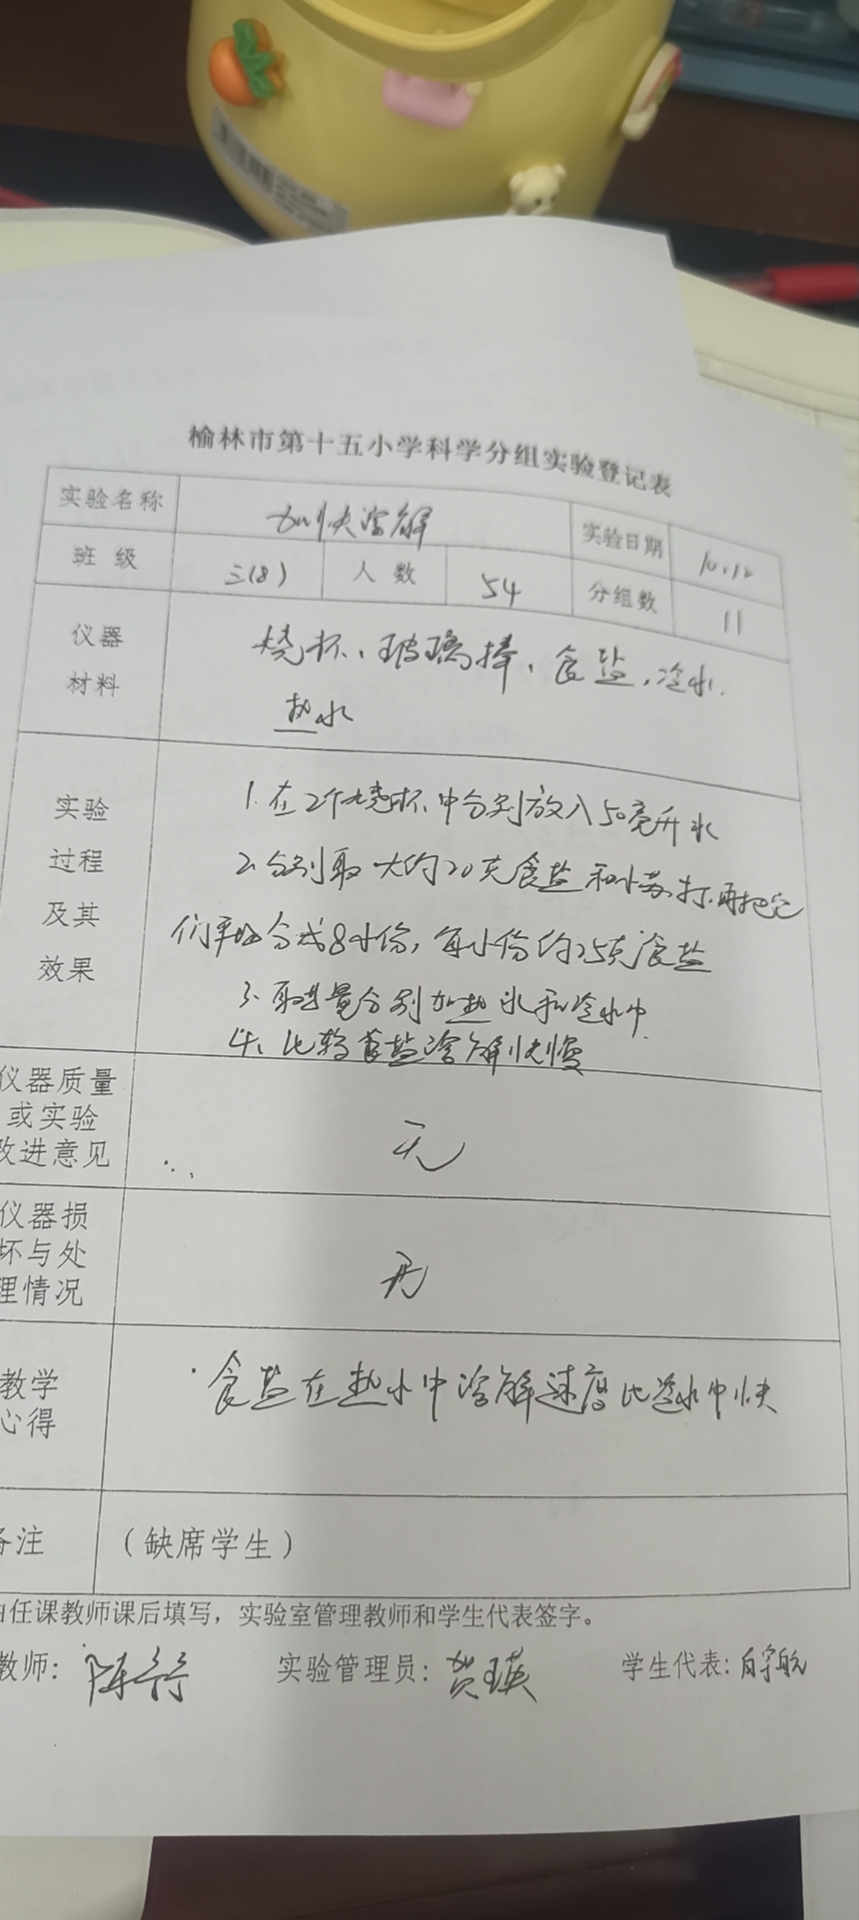 榆林市第十五小学科学分组实验登记表
实验名称 加快溶解 实验日期 10.12
班级 三(8) 人数 54 分组数 11
仪器 烧杯、玻璃棒、食盐、冷水、
材料 热水
实验 1.在2个烧杯中分别放入50毫升水
过程 2.分别取大约20克食盐和小苏打.再把它
及其 们平均分成8小份,每小份约2.5克食盐
效果 3、取等量分别加热水和冷水中.
4、比较食盐溶解快慢
仪器质量
或实验 无
改进意见
仪器损
坏与处 无
理情况
教学 食盐在热水中溶解速度比冷水中快
心得
备注 (缺席学生)
由任课教师课后填写,实验室管理教师和学生代表签字。
教师: 实验管理员: 贺瑛 学生代表: 白宇航